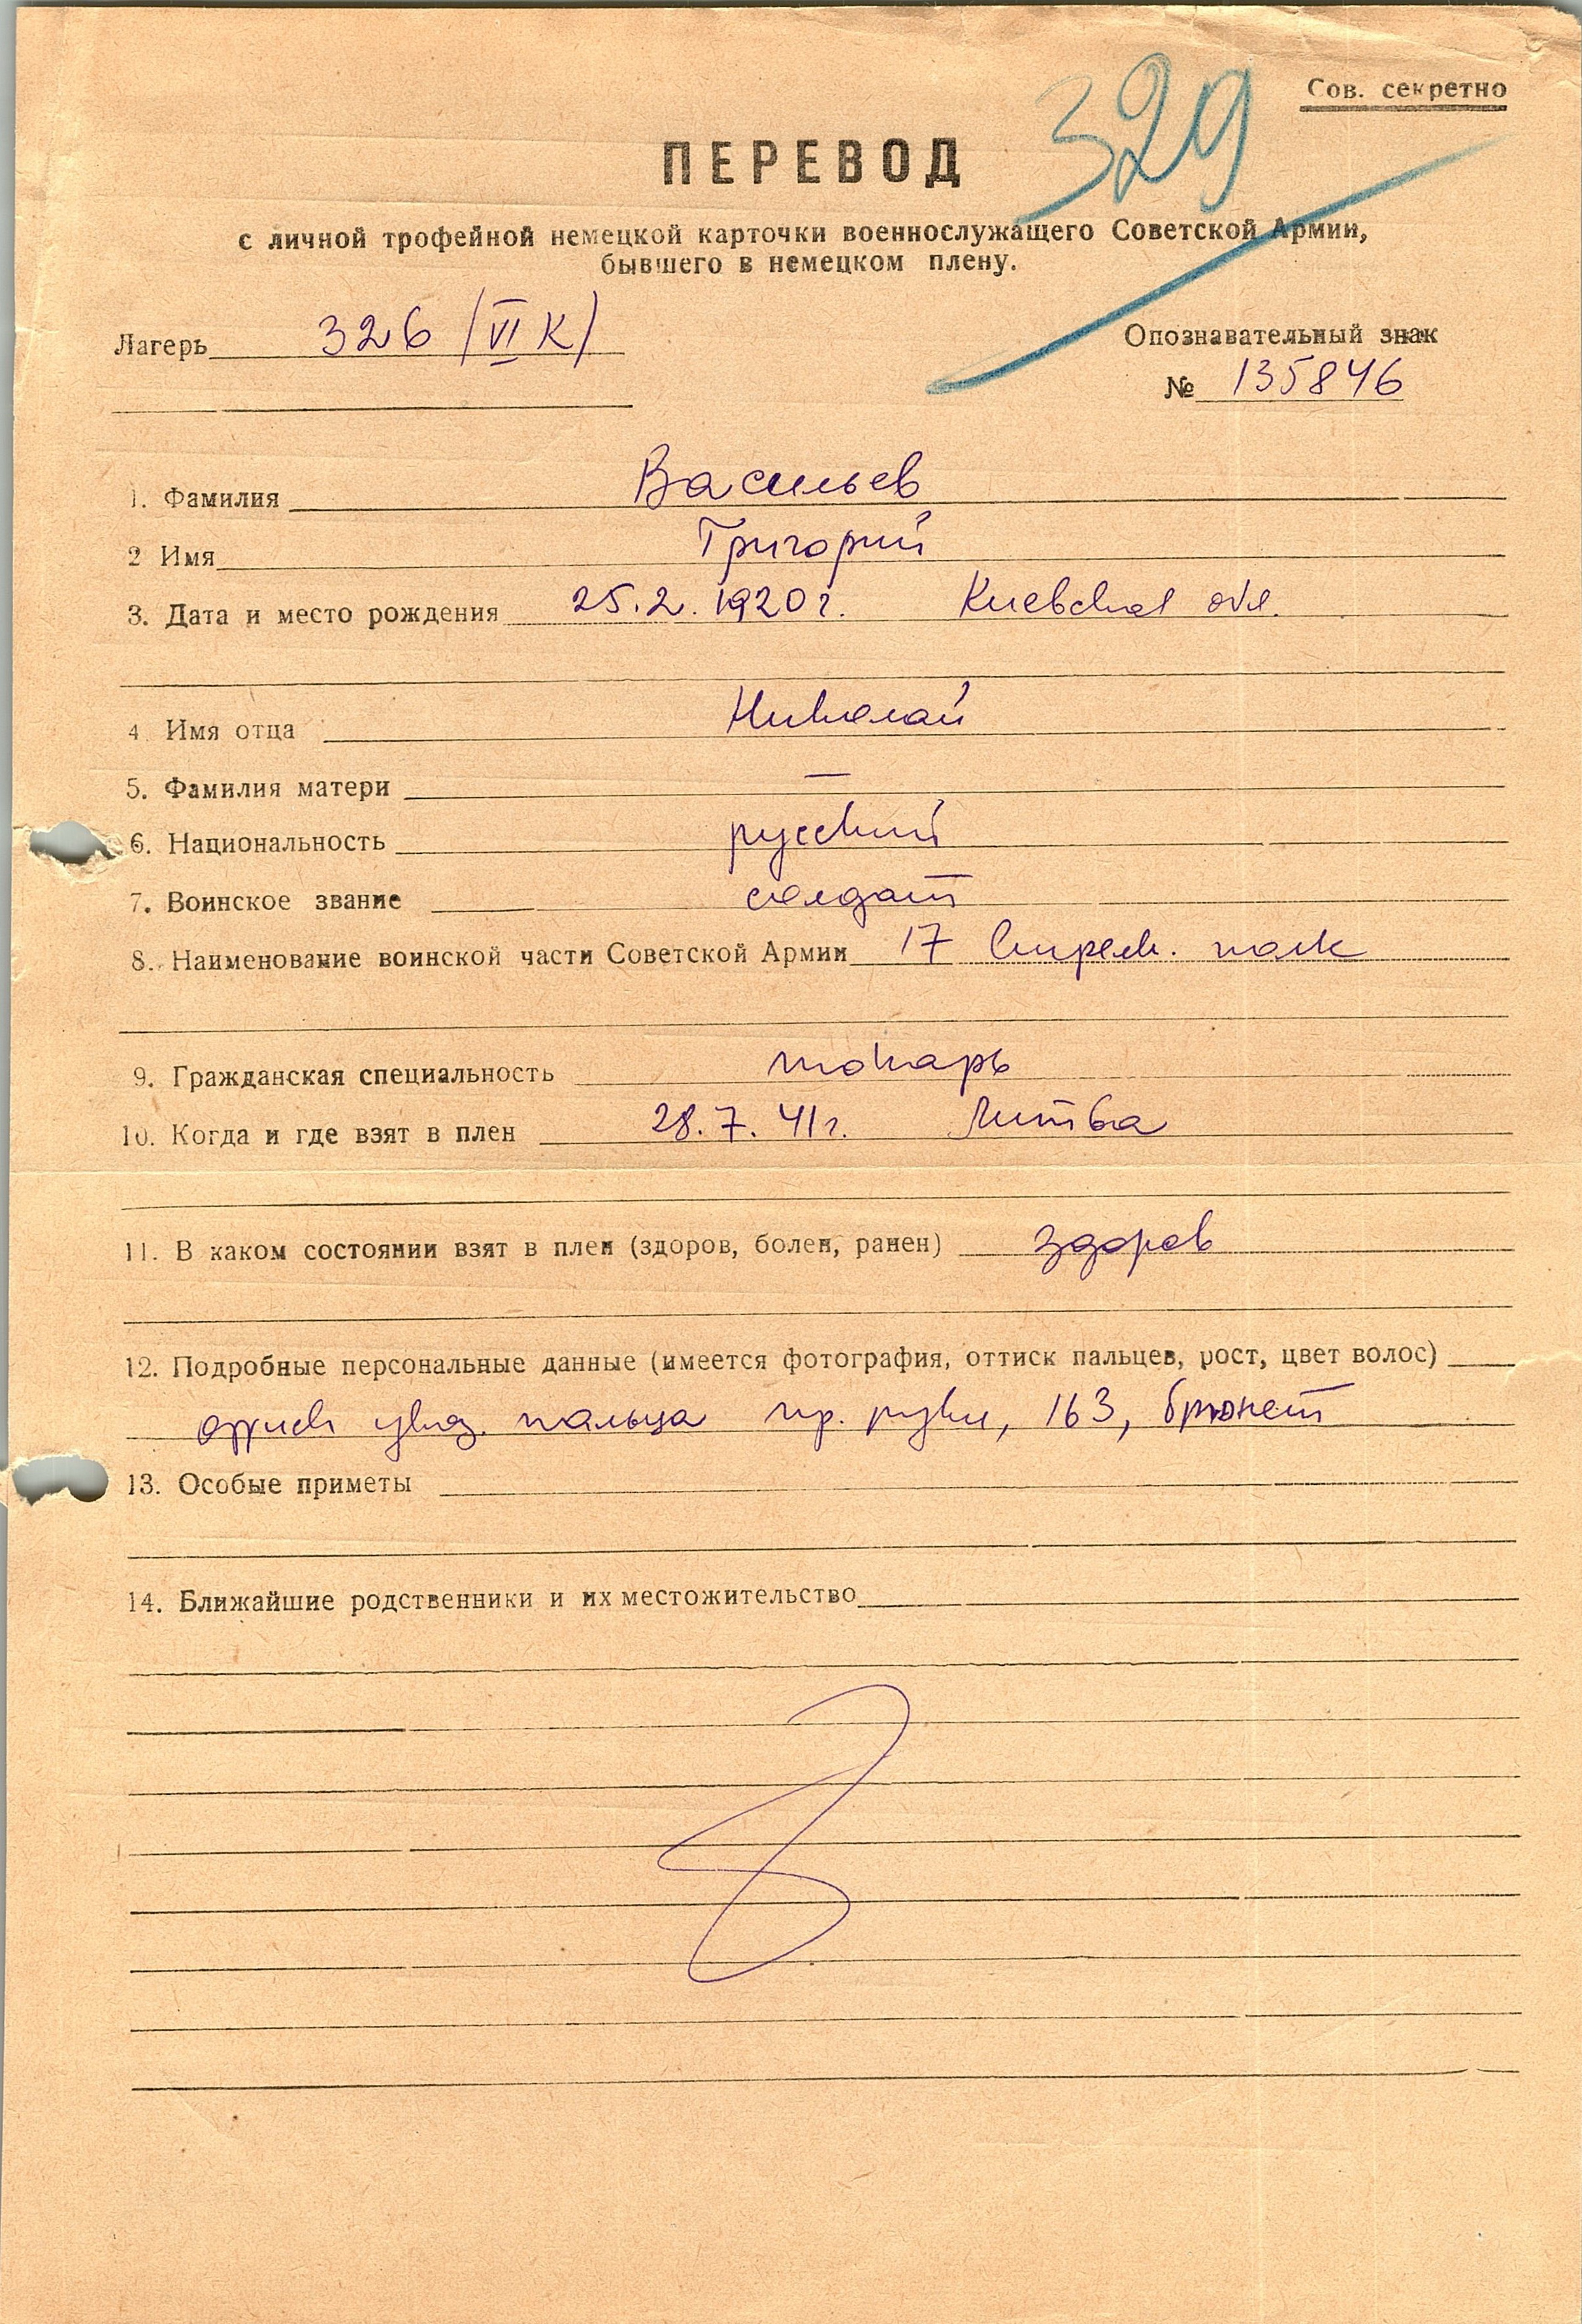 Сов. секретно
329
ПЕРЕВОД
с личной трофейной немецкой карточки военнослужащего Советской Армии,
бывшего в немецком плену.
Лагерь 326 /VI К/
Опознавательный знак
№ 135846
1. Фамилия Васильев
2 Имя Григорий
3. Дата и место рождения 25.2.1920 г. Киевская обл.
4. Имя отца Николай
5. Фамилия матери —
6. Национальность русский
7. Воинское звание солдат
8. Наименование воинской части Советской Армии 17 стрелк. полк
9. Гражданская специальность токарь
10. Когда и где взят в плен 28.7.41г. Литва
11. В каком состоянии взят в плен (здоров, болен, ранен) здоров
12. Подробные персональные данные (имеется фотография, оттиск пальцев, рост, цвет волос)
указ. пальца пр. руки, 163, брюнет
13. Особые приметы
14. Ближайшие родственники и их местожительство